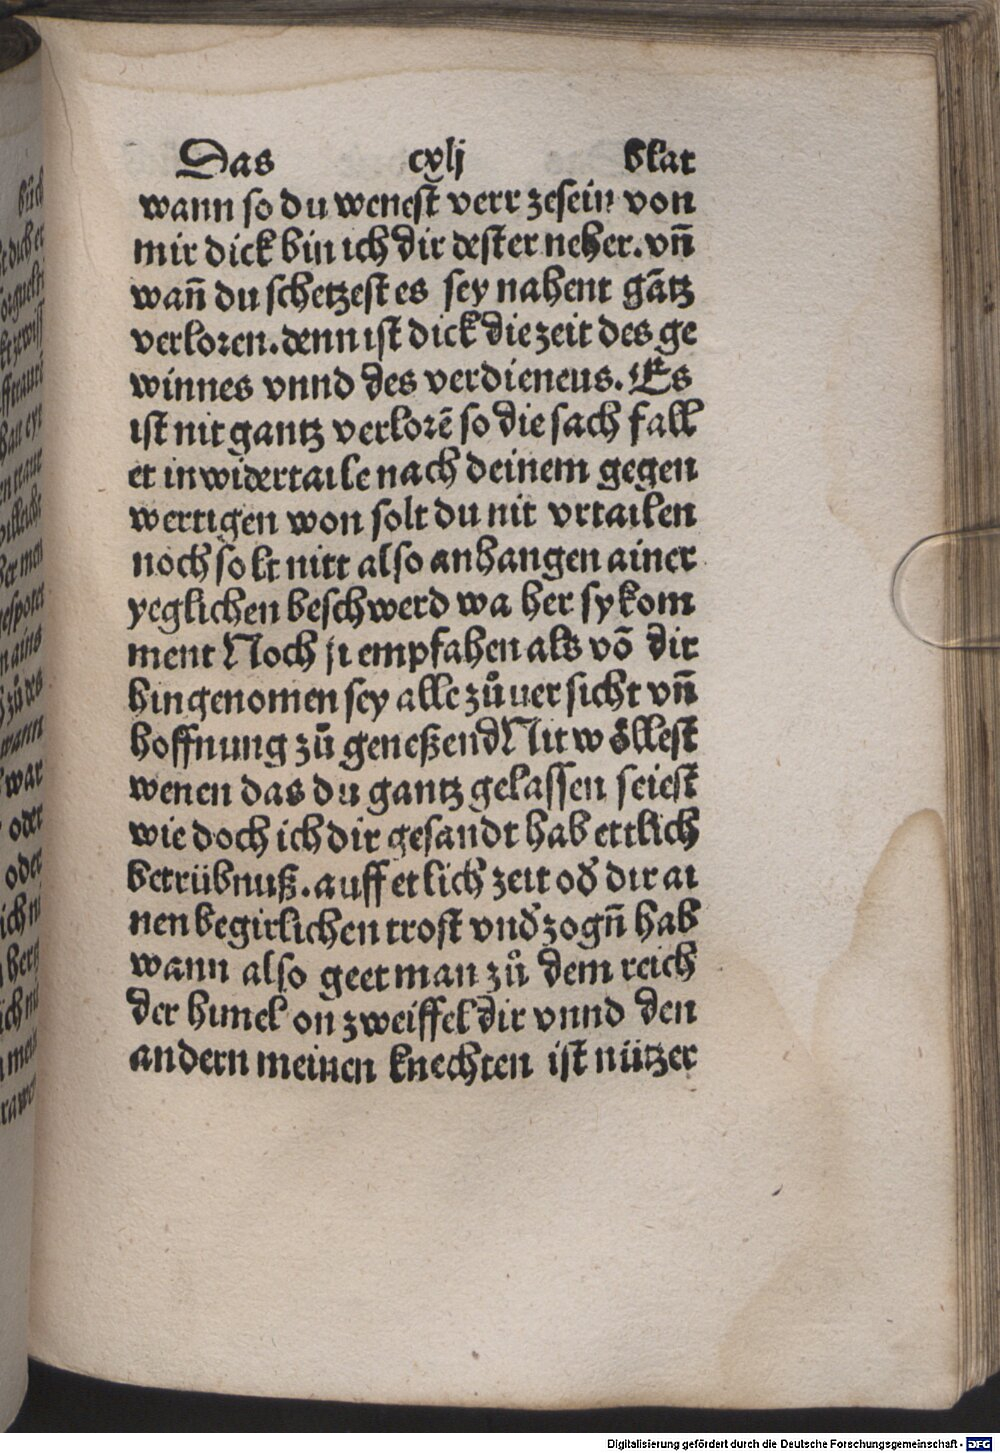 Das cxlj blat
wann so du wenest verr zesein von
mir dick bin ich dir dester neher. vñ
wañ du schetzest es sey nahent gãtz
verloren. denn ist dick die zeit des ge
winnes vnnd des verdieneus. Es
ist nit gantz verlorẽ so die sach fall
et in widertaile nach deinem gegen
wertigen won solt du nit vrtailen
noch solt nitt also anhangen ainer
yeglichen beschwerd wa her sy kom
ment Noch ji empfahen als võ dir
hingenomen sey alle zůuersicht vñ
hoffnung zů geneßend Nit wöllest
wenen das du gantz gelassen seiest
wie doch ich dir gesandt hab ettlich
betrübnuß. auff etlich zeit oď dir ai
nen begirlichen trost vnďzogñ hab
wann also geet man zů dem reich
der himel on zweiffel dir vnnd den
andern meinen knechten ist nützer
Digitalisierung gefördert durch die Deutsche Forschungsgemeinschaft - DFG